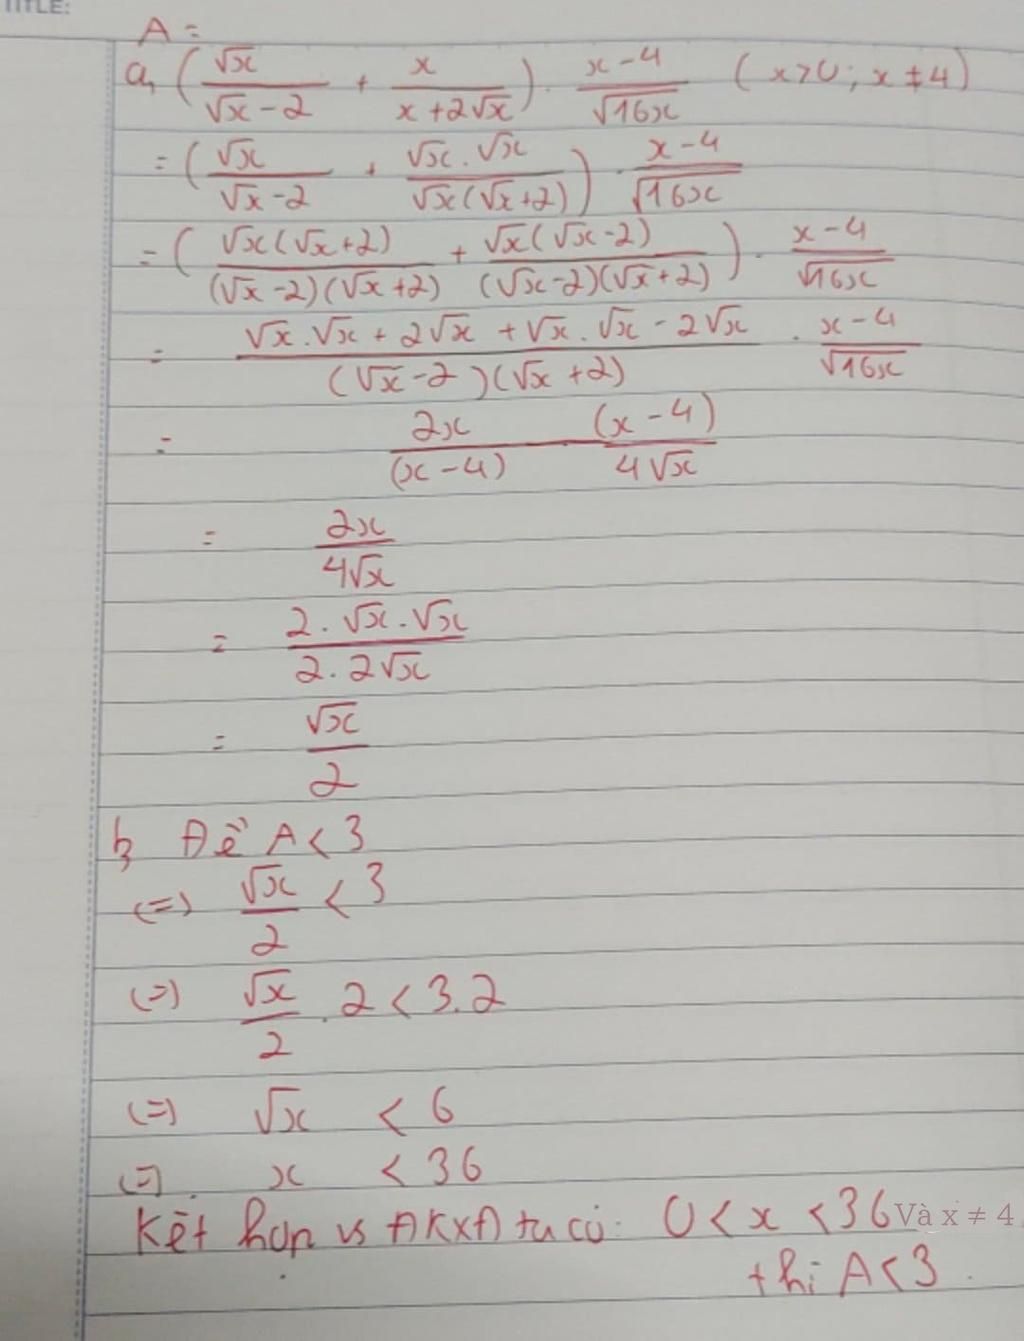 TITLE:
A =
a, (√x/(√x - 2) + x/(x + 2√x)) . (x - 4)/√16x (x > 0; x ≠ 4)
= (√x/(√x - 2) + √x . √x/(√x(√x + 2))) . (x - 4)/√16x
= (√x(√x + 2)/((√x - 2)(√x + 2)) + √x(√x - 2)/((√x - 2)(√x + 2))) . (x - 4)/√16x
= (√x . √x + 2√x + √x . √x - 2√x)/((√x - 2)(√x + 2)) . (x - 4)/√16x
= 2x/(x - 4) . (x - 4)/4√x
= 2x/4√x
= 2 . √x . √x/2 . 2√x
= √x/2
b, Để A < 3
(=) √x/2 < 3
(=) √x/2 . 2 < 3.2
(=) √x < 6
(=) x < 36
Kết hợp vs ĐKXĐ ta có: 0 < x < 36 Và x ≠ 4
thì A < 3.